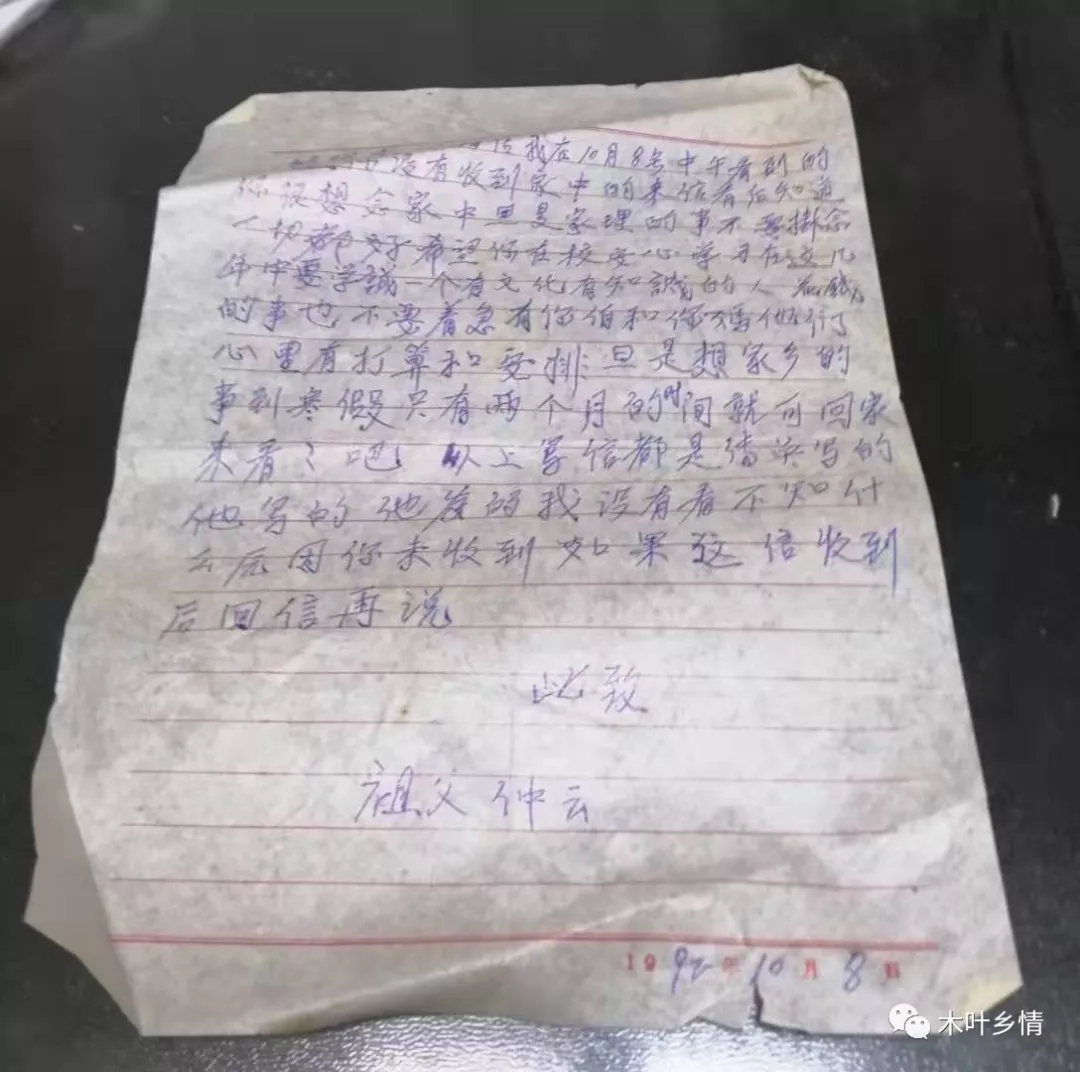 信我在10月8号中午看到的
没有收到家中的来信看后知道
你很想念家中旦是家理的事不要掛念
一切都好希望你在校安心学习在这几
年中要学誠一个有文化有知識的人 花錢
的事也不要着急有你伯和你妈他们
心里有打算和安排旦是想家乡的
事到寒假只有两个月的时间就可回家
来看＝吧 以上写信都是倩写的
他写的他发的我没有看不知什
么原因你未收到如果这信收到
后回信再说
此致
祖父仲云
1992年10月8日
木叶乡情